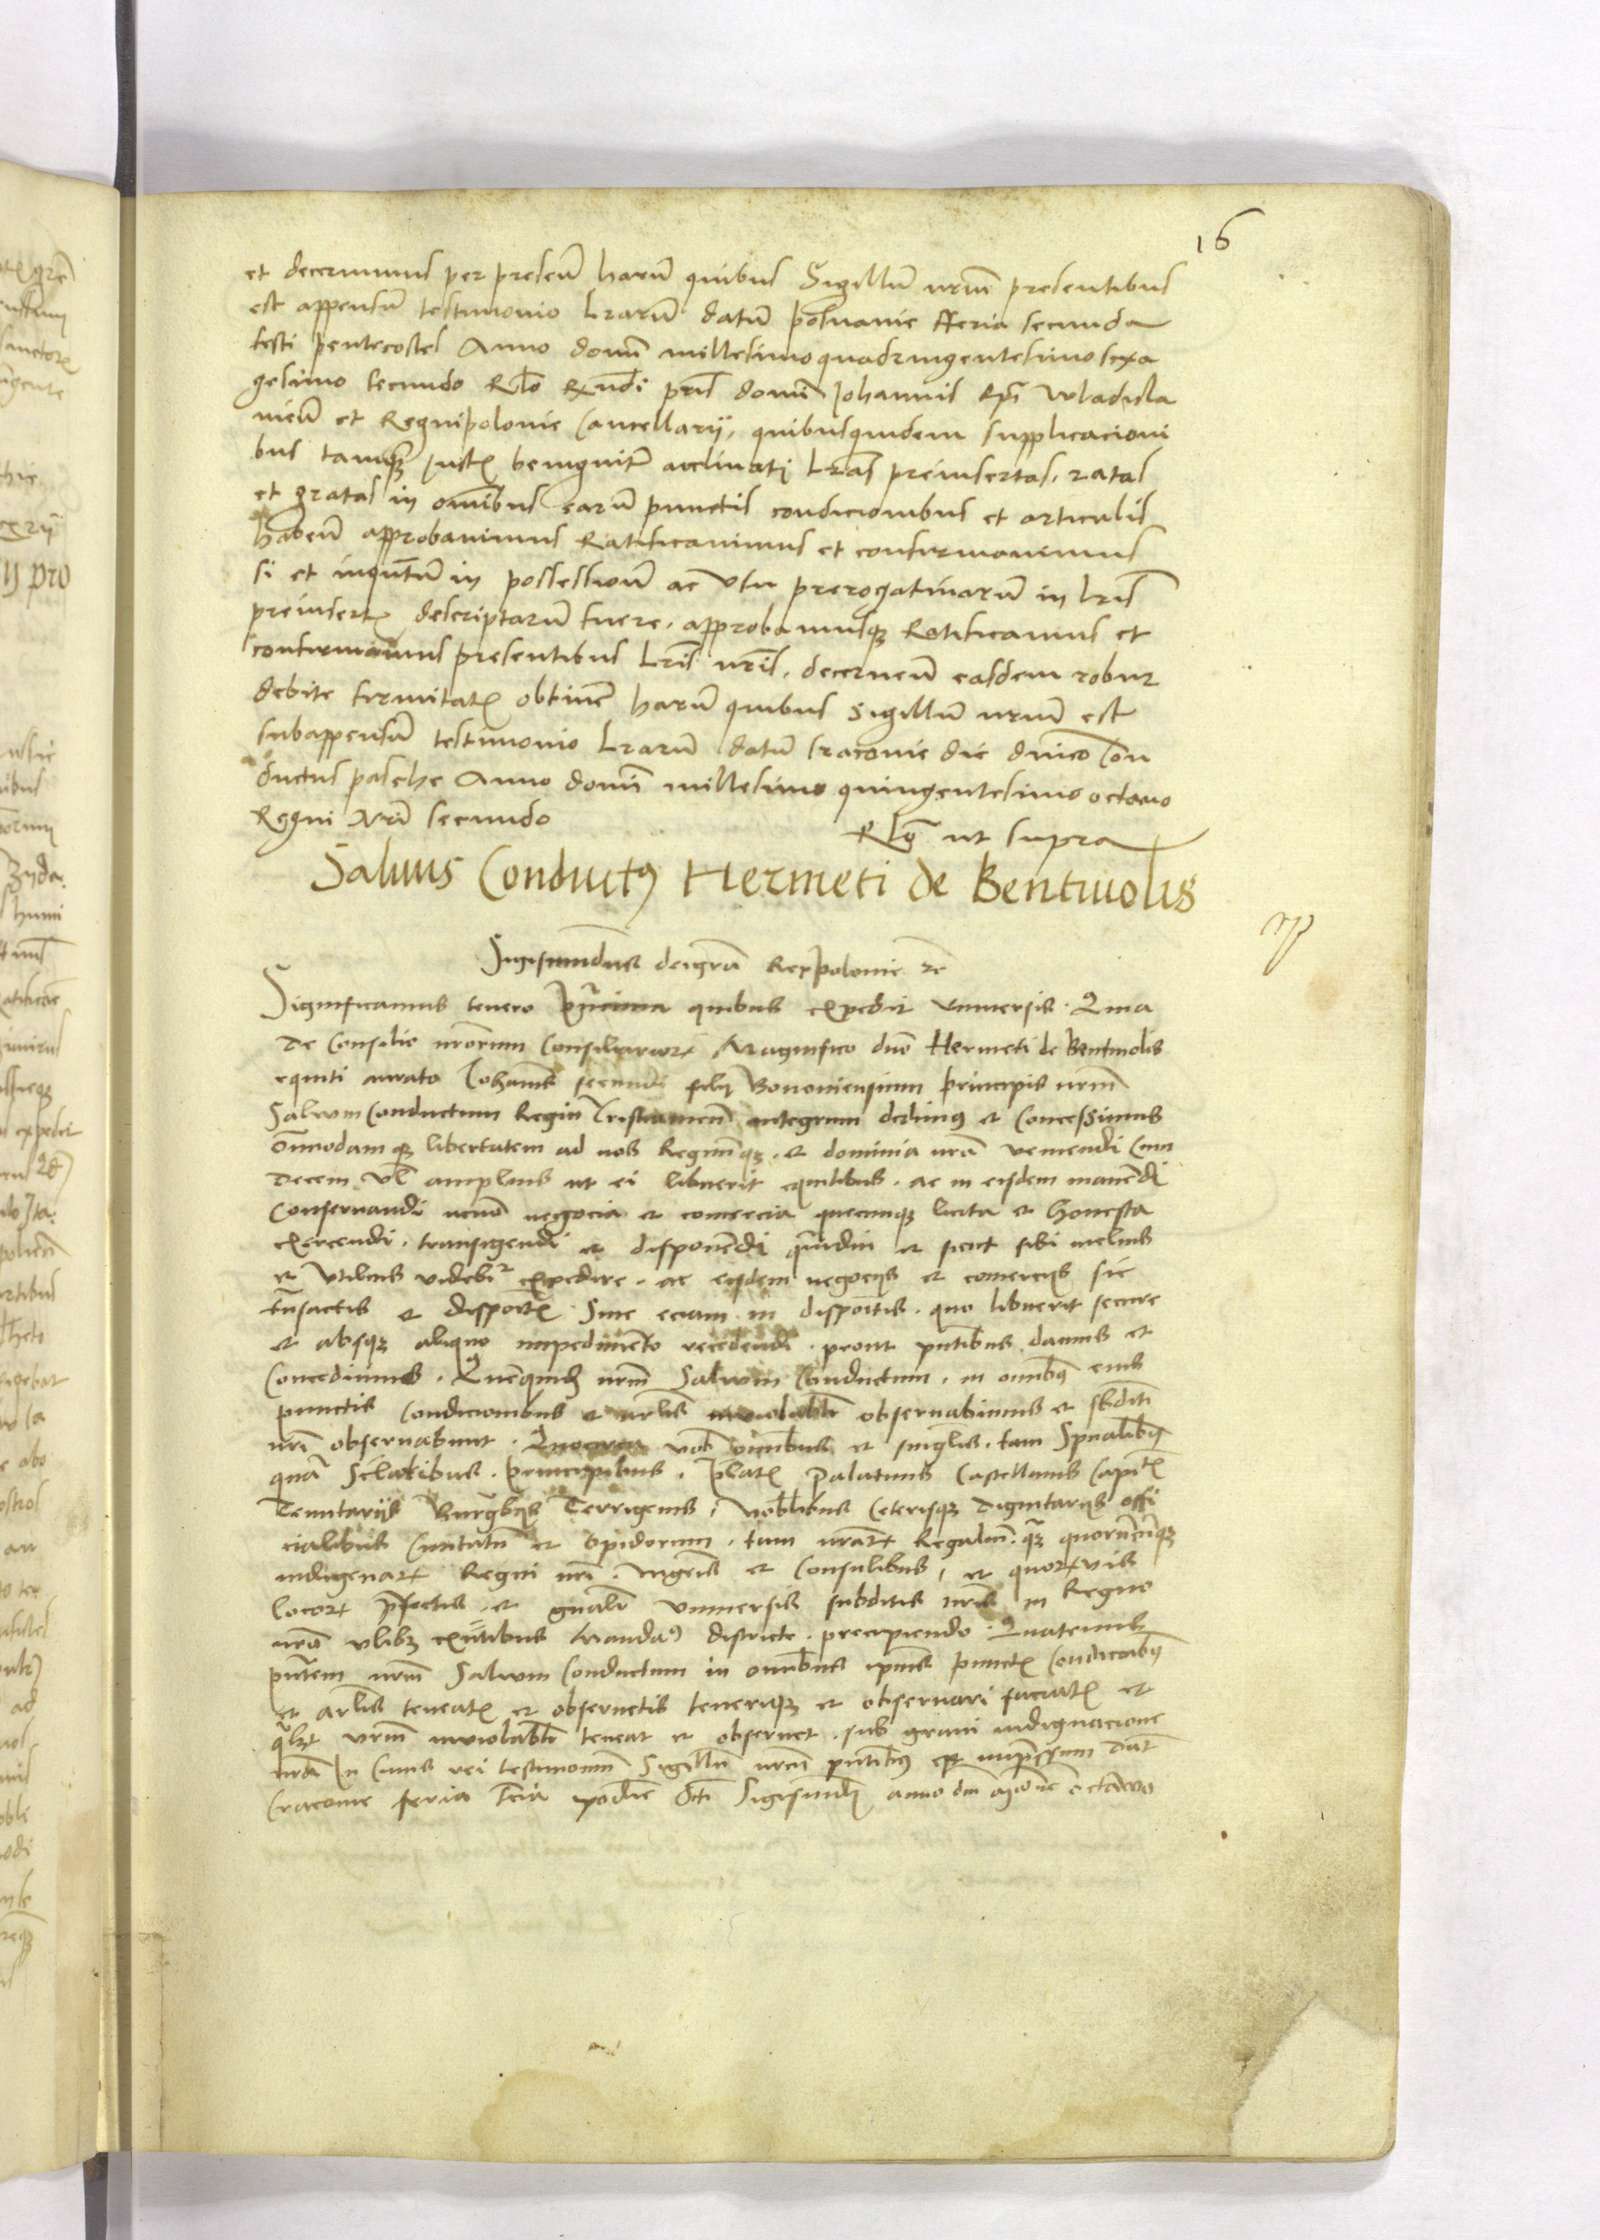 16
et decernimus per presen harum quibus Sigillum nrum presentibus
est appensum testimonio lrarum datum posnanie fferia secunda
festi pentecostes Anno domi millesimo quadringentesimo sexa
gesimo secundo Rlo Rundi pris domi Johannis Epi wladisla
vien et Regni polonie Cancellarii, quibusquidem supplicacioni
bus tamquam iustis benigniter acclinati lras preinsertas, ratas
et gratas in omibus earum punctis condicionibus et articulis
haben approbavimus Ratificavimus et confirmavimus
si et inquntum in possessioum ac usu prerogativarum in lris
preinsertis descriptarum fuere, approbamusque Ratificamus et
confirmamus presentibus lris nris, decernen easdem robur
debite firmitatis obtinere harum quibus sigillum nrum est
subappensum testimonio lrarum datum Cracovie die dnico Con
ductus pasche Anno domi millesimo quingentesimo octavo
Regni Nri secundo
Rlo ut supra
Salvus Conductus Hermeti de Bentivolis
Sigismundus dei gra Rex polonie etc
Significamus tenore quibus expedit universis. Quia
de Consilio nrorum Consiliariorum Magnifico dno Hermeti de Bentivolis
equiti aurato Johannis secundi filij Bononiensium principis nrum
Salvum Conductum Regium integrum dedimus et Concessimus
Omnimodamque libertatem ad nos Regnumque et dominia nra veniendi Cum
decem vl amplius ut ei libuerit equitibus. ac in eisdem manendi
Conservandi negocia et comercia quecunque licita et honesta
exercendi. transigendi et disponendi quamdiu et sicut sibi melius
et utilius videbitur expedire. ac eisdem negocijs et comercijs sic
transactis et dispositis Sive eciam in dispoitis. quo libuerit secure
et absque aliquo impedimento recedendi. prout pntibus damus et
Concedimus. Quemquidem nrum Salvum Conductum. in omibus eius
punctis Condicionibus et arlis inviolabilr observabimus et sbditi
nri observabunt. Quocirca vob omibus et singlis. tam Spualibus
quam Sclaribus. principibus. Platis Palatinis Castellanis Capitis
Tenutarijs Burgbijs Terrigenis, Nobilibus Ceterisque dignitarijs offi
cialibus Civitatum et Opidorum. tam nrarum Regalium. quam quorumcunque
indigenarum Regni nri. Mgris et Consulibus, et quorumvis
locorum pfectis. et gnalr universis subditis nris in Regno
nro ulibet existibus Mandamus districte. precipiendo. Quatenus
pntem nrum Salvum Conductum in omibus ipius punctis Condicionibus
et arlis teneatis et observetis tenerique et observari faciatis et
quilibet vrum inviolabilr teneat et observet. sub gravi indignacione
nra In Cuius rei testimonium Sigillum nrum pntibus est impressum Dat
Cracovie feria Tercia ipo die Scti Sigismundi anno dni octavo